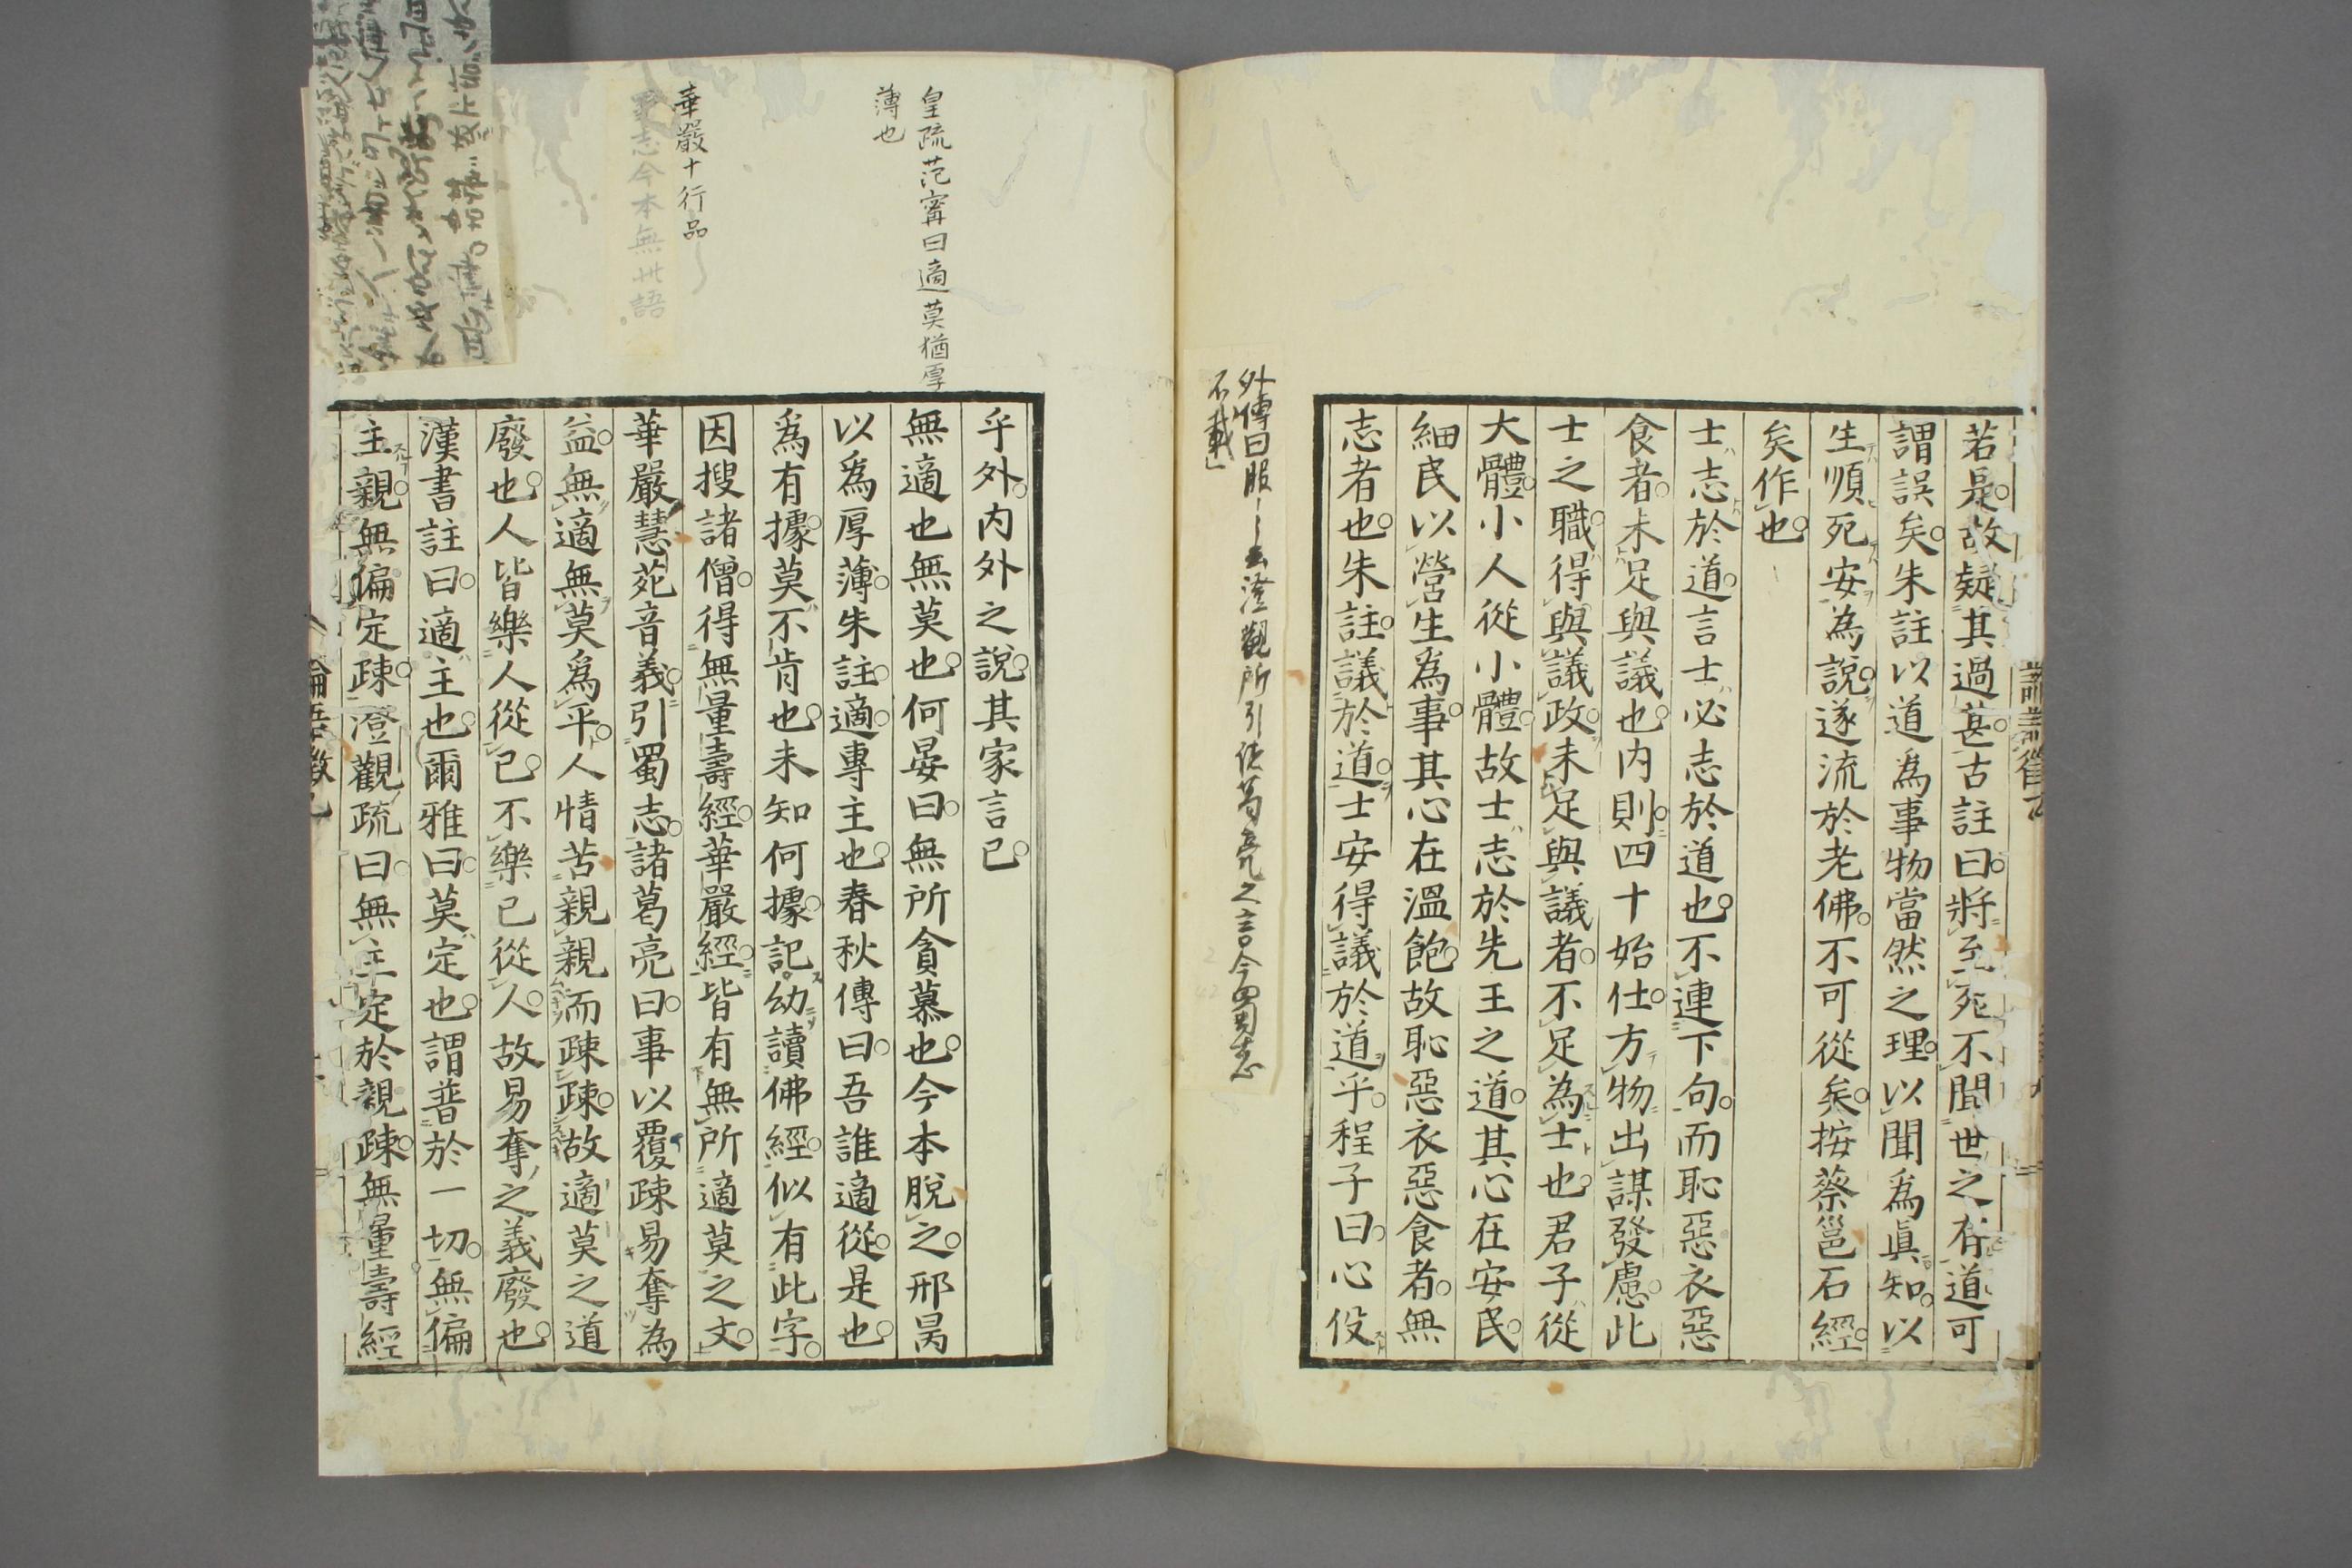 若是故疑其過甚古註曰將至死不聞世之有道可
謂誤矣朱註以道爲事物當然之理以聞爲眞知以
生順死安為說遂流於老佛不可從矣按蔡邕石經
矣作也
士志於道言士必志於道也不連下句而恥惡衣惡
食者未足與議也内則四十始仕方物出謀發慮此
士之職得與議政未足與議者不足為士也君子從
大體小人從小體故士志於先王之道其心在安民
細民以營生爲事其心在溫飽故恥惡衣惡食者無
志者也朱註議於道士安得議於道乎程子曰心役
不載
乎外内外之說其家言已
無適也無莫也何晏曰無所貪慕也今本脫之邢昺
以爲厚薄朱註適專主也春秋傳曰吾誰適從是也
爲有據莫不肯也未知何據記幼讀佛經似有此字
因搜諸僧得無量壽經華嚴經皆有無所適莫之文
華嚴慧苑音義引蜀志諸葛亮曰事以覆疎易奪為
益無適無莫爲平人情苦親親而疎疎故適莫之道
廢也人皆樂人從已不樂已從人故易奪之義廢也
漢書註曰適主也爾雅曰莫定也謂普於一切無偏
主親無偏定疎澄觀疏曰無主定於親疎無量壽經
皇疏范甯曰適莫猶厚
薄也
華嚴十行品
志今本無此語